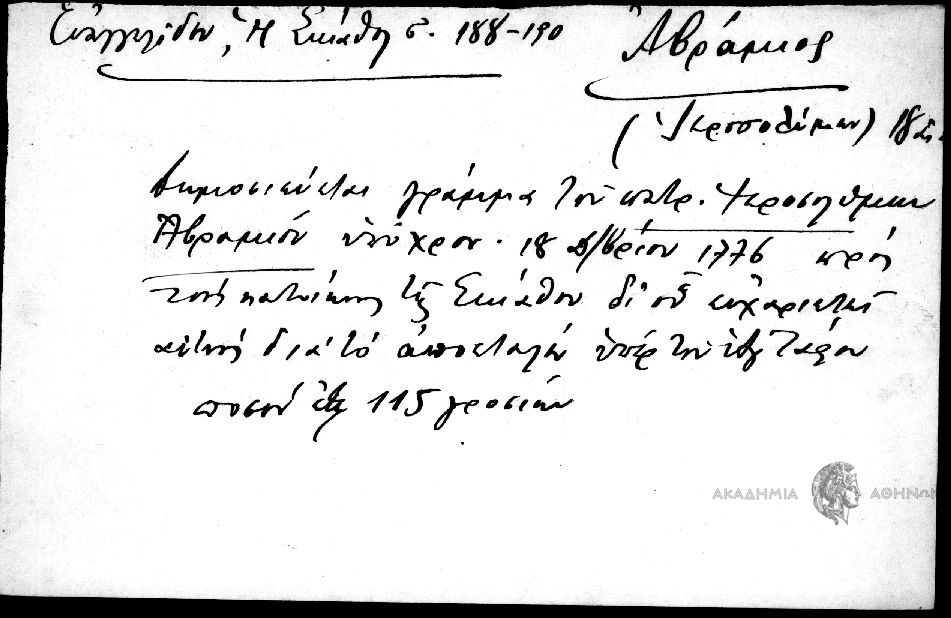 Εὐαγγελίδου, Ἡ Σκιάθος σ. 188-190
Ἀβράμιος
(Ἱεροσολύμων) 18
Δημοσιεύεται γράμμα τοῦ πατρ. Ἱεροσολύμων
Ἀβραμίου ὑπὸ χρον. 18 Δ/βρίου 1776 πρὸς
τοὺς κατοίκους τῆς Σκιάθου δι' οὗ εὐχαριστεῖ
αὐτοὺς διὰ τὸ ἀποσταλὲν ὑπὲρ τοῦ ἁγ. Τάφου
ποσὸν ἐξ 115 γροσίων
ΑΚΑΔΗΜΙΑ ΑΘΗΝΩΝ